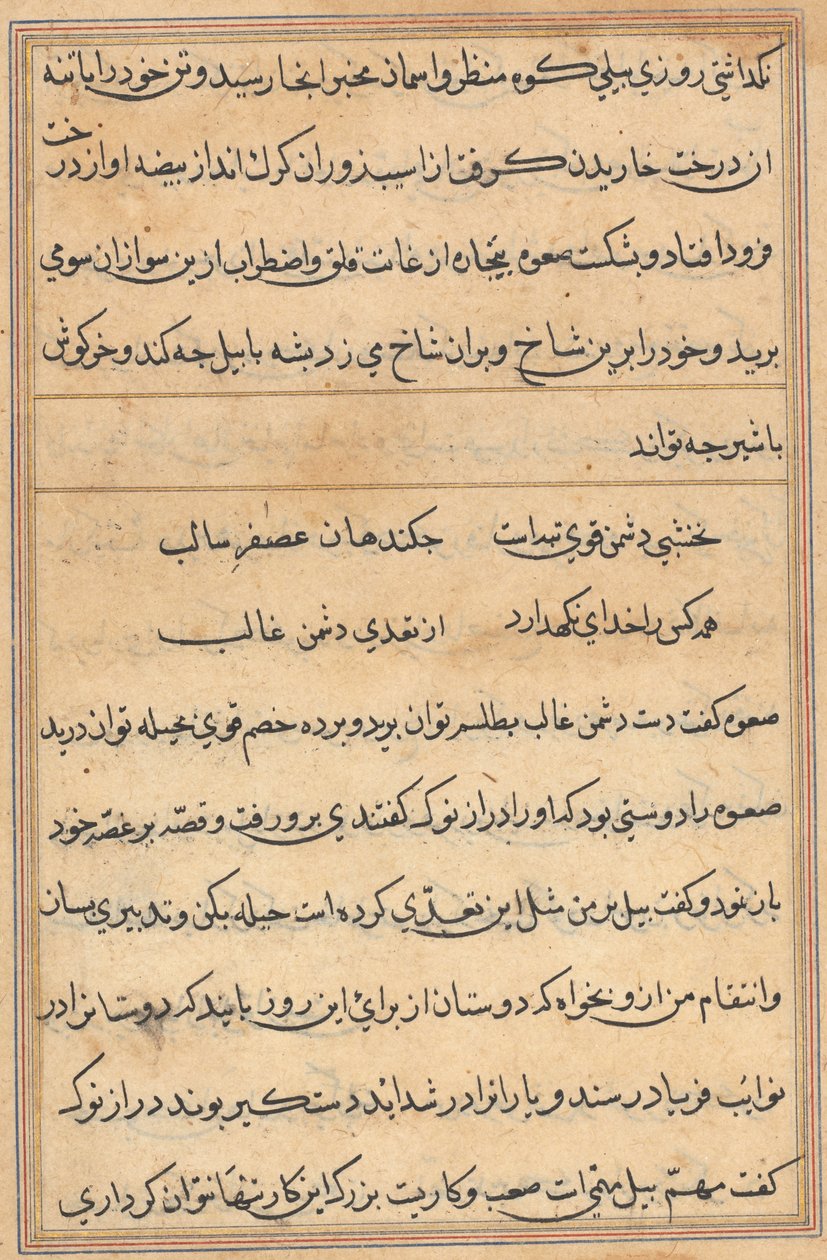 نکداشتی روزی بیلی کوه منظر واسمان مخبر انجا رسید و تن خود را باتنه
ان درخت خاریدن کرفت از اسیب زوران کرك انداز بیضه او از درخت
فرود افتاد و بشکست صعوه بیچاره از غایت قلق واضطراب ازین سو ازان سو می
برید و خود را برین شاخ و بران شاخ می زد بشه با بیل جه کند و خرکوش
با شیر جه تواند
نخشبی دشمن قوی تبداست جکند هان عصفر سالب
همه کس را خدای نکهدارد از تعدی دشمن غالب
صعوه کفت دست دشمن غالب بطلسم توان برید و برده خصم قوی بحیله توان درید
صعوه را دوستی بود که او را دراز نوك کفتندی برو رفت و قصّه بر غصّه خود
باز نمود و کفت بیل بر من مثل این تعدّی کرده است حیله بکن و تدبیری بسان
وانتقام من ازو بخواه که دوستان از برائ این روز بایند که دوستانرا در
نوایب فریاد رسند و یارانرا در شداید دستکیر بوند دراز نوك
کفت مهمّ بیل مهمّی است صعب و کاریت بزرك این کار تنها نتوان کرد اری